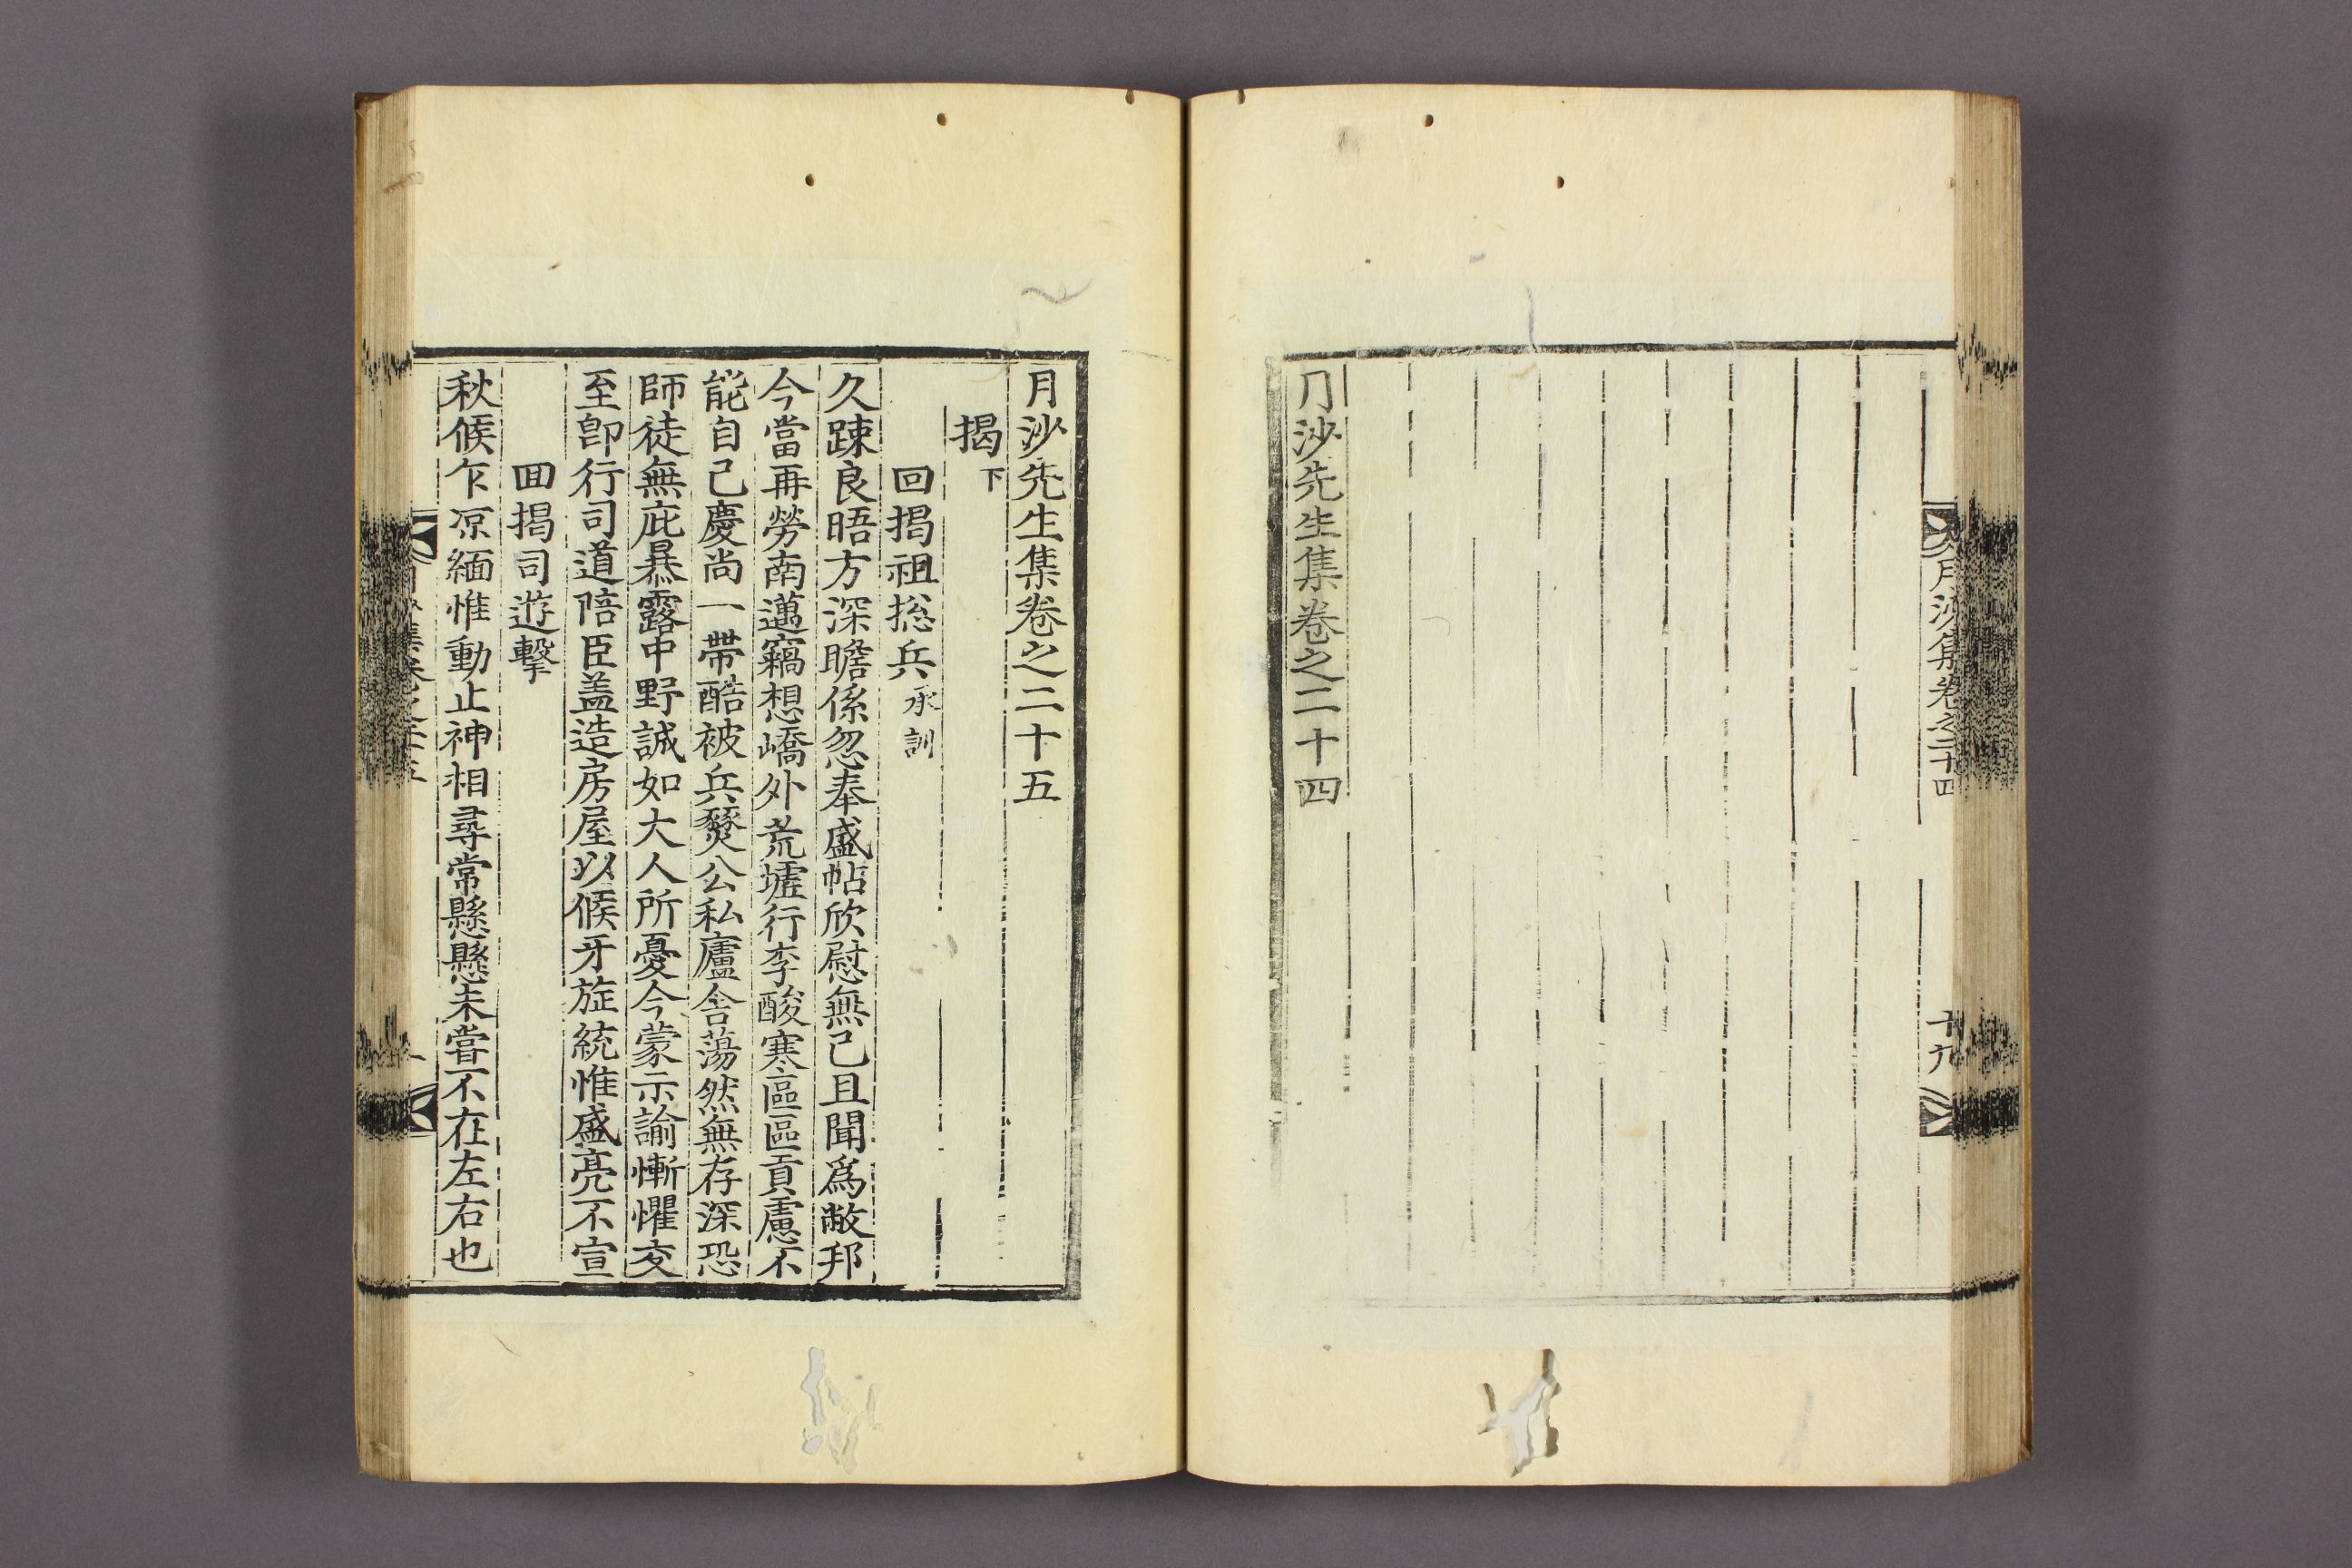 月沙集卷之二十四
十九
月沙先生集卷之二十四
月沙先生集卷之二十五
揭下
回揭祖摠兵承訓
久踈良晤方深瞻係忽奉盛帖欣慰無已且聞爲敝邦
今當再勞南邁竊想嶠外荒墟行李酸寒區區貢慮不
能自已慶尙一帶酷被兵燹公私廬舍蕩然無存深恐
師徒無庇暴露中野誠如大人所憂今蒙示諭慚懼交
至卽行司道陪臣盖造房屋以候牙旋統惟盛亮不宣
回揭司遊擊
秋候乍凉緬惟動止神相尋常懸懸未嘗不在左右也